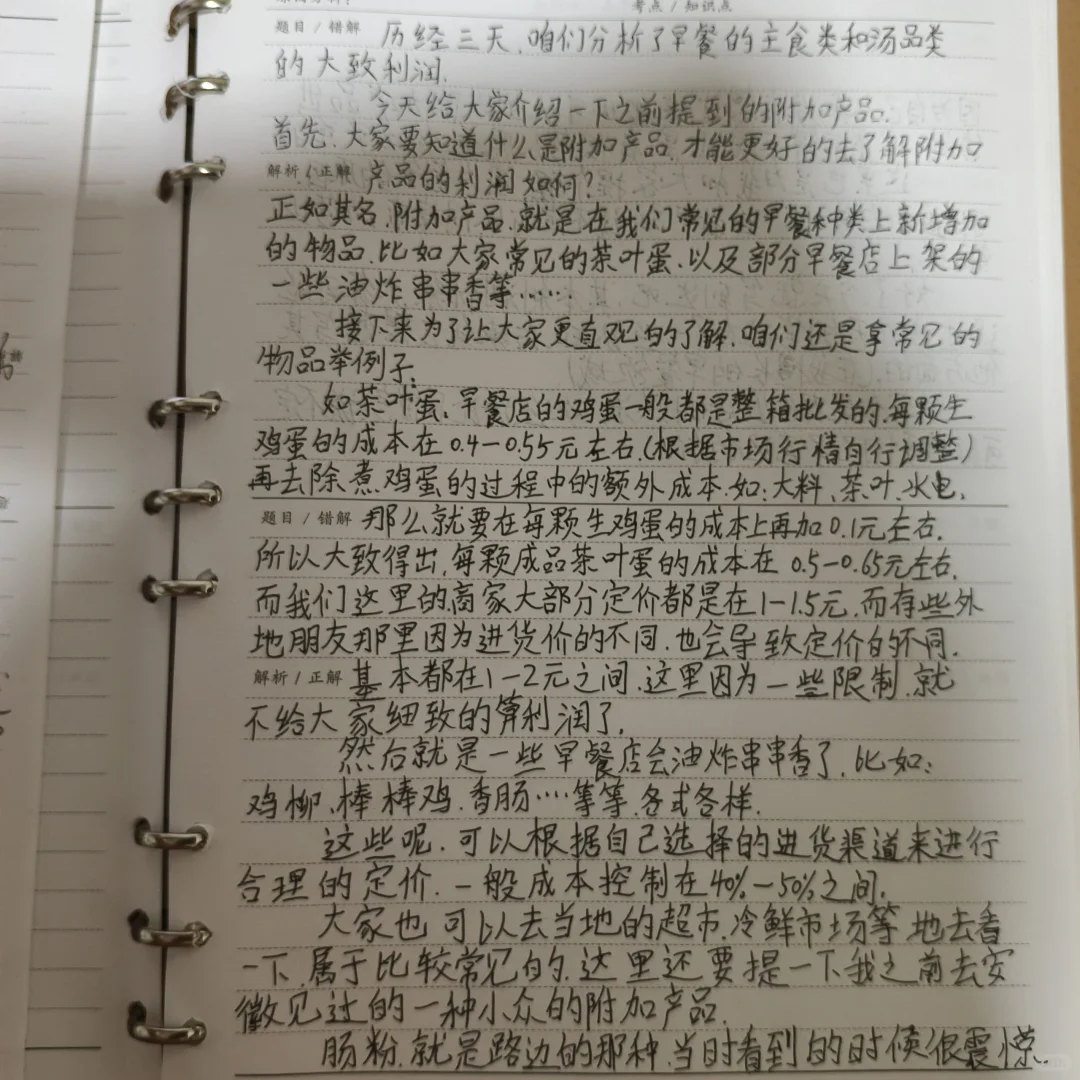 考点 / 知识点
题目 / 错解 历经三天,咱们分析了早餐的主食类和汤品类
的大致利润.
今天给大家介绍一下之前提到的附加产品.
首先.大家要知道什么是附加产品.才能更好的去了解附加
解析 / 正解 产品的利润如何?
正如其名.附加产品.就是在我们常见的早餐种类上新增加
的物品.比如大家常见的茶叶蛋、以及部分早餐店上架的
一些油炸串串香等……
接下来为了让大家更直观的了解.咱们还是拿常见的
物品举例子.
如茶叶蛋、早餐店的鸡蛋一般都是整箱批发的.每颗生
鸡蛋的成本在0.4-0.55元左右.(根据市场行情自行调整)
再去除煮鸡蛋的过程中的额外成本.如:大料、茶叶.水电.
题目 / 错解 那么就要在每颗生鸡蛋的成本上再加0.1元左右.
所以大致得出,每颗成品茶叶蛋的成本在 0.5-0.65元左右.
而我们这里的商家大部分定价都是在1-1.5元.而有些外
地朋友那里因为进货价的不同.也会导致定价的不同.
解析 / 正解 基本都在1-2元之间.这里因为一些限制.就
不给大家细致的算利润了.
然后就是一些早餐店会油炸串串香了.比如:
鸡柳、棒棒鸡.香肠……等等.各式各样.
这些呢.可以根据自己选择的进货渠道来进行
合理的定价.一般成本控制在40%-50%之间.
大家也可以去当地的超市.冷鲜市场等地去看
一下.属于比较常见的.这里还要提一下我之前去安
徽见过的一种小众的附加产品.
肠粉.就是路边的那种.当时看到的时候很震惊..